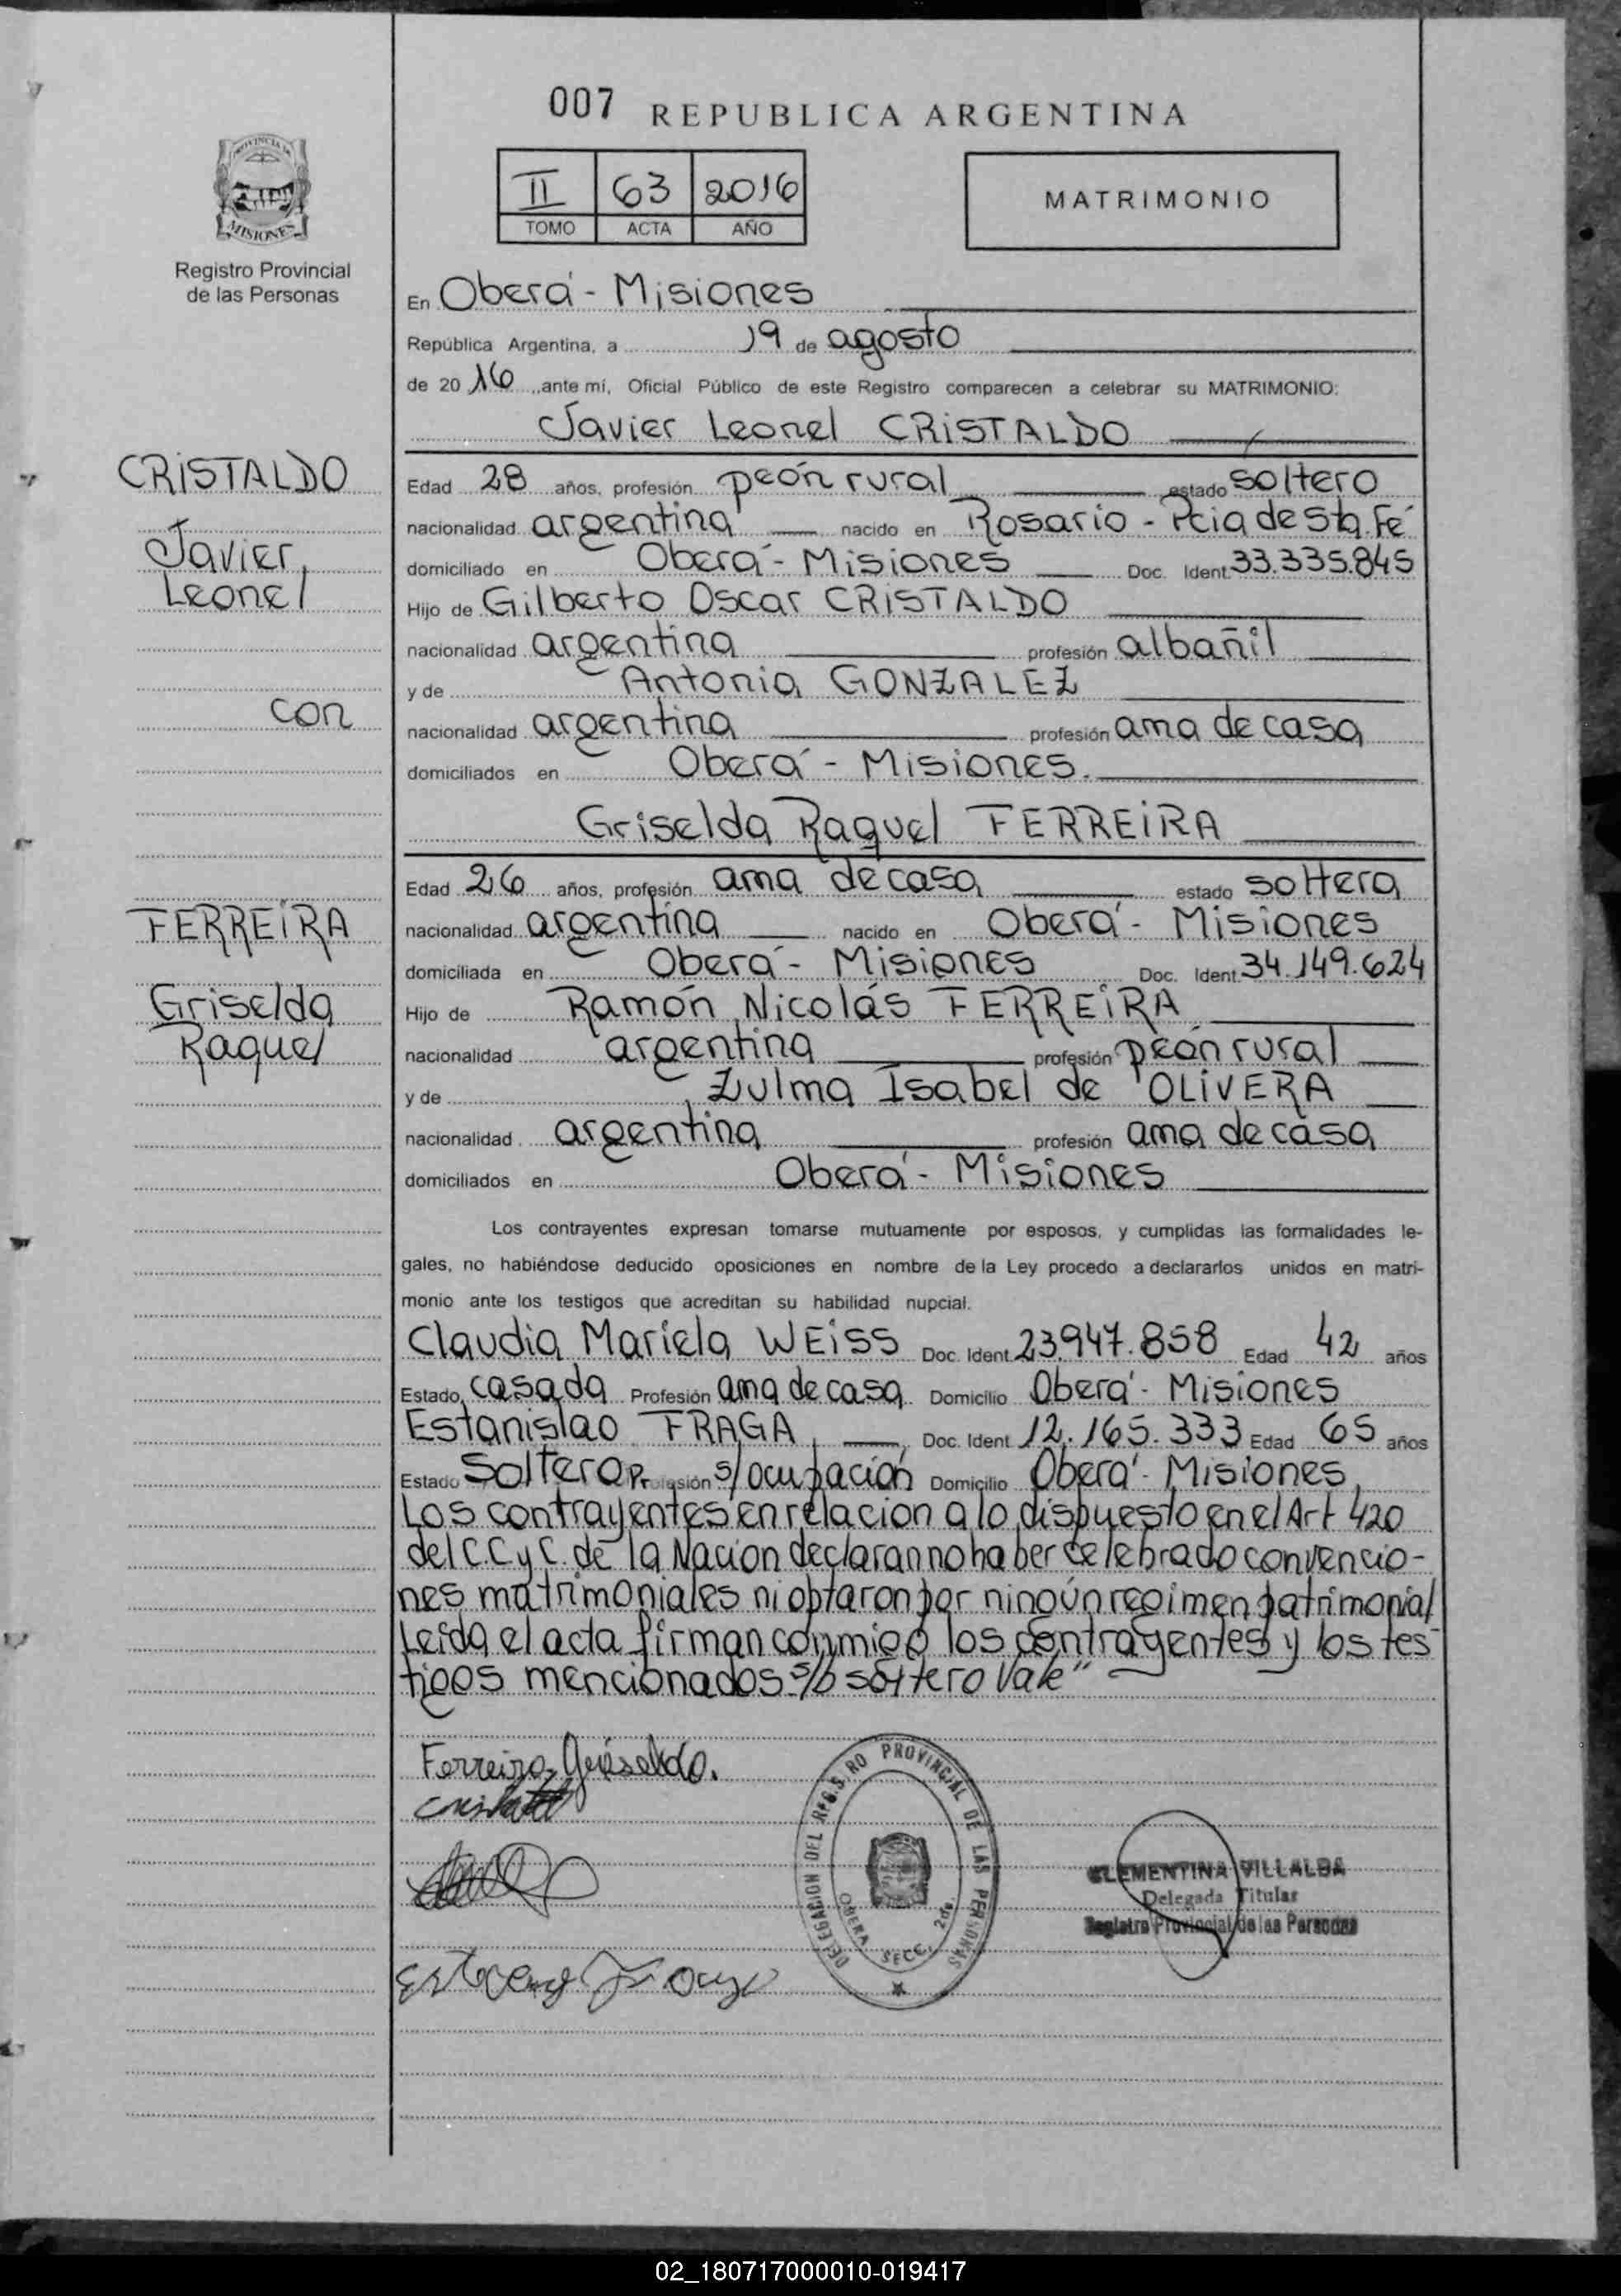 007 REPUBLICA ARGENTINA
PROVINCIA DE
MISIONES
Registro Provincial
de las Personas
II 63 2016
TOMO ACTA AÑO
MATRIMONIO
En Oberá - Misiones
República Argentina, a 19 de agosto
de 20 16 ante mí, Oficial Público de este Registro comparecen a celebrar su MATRIMONIO:
Javier Leonel CRISTALDO
CRISTALDO
Javier
Leonel
con
FERREIRA
Griselda
Raquel
Edad 28 años, profesión peón rural estado soltero
nacionalidad argentina nacido en Rosario - Pcia de Sta. Fé
domiciliado en Oberá - Misiones Doc. Ident. 33.335.845
Hijo de Gilberto Oscar CRISTALDO
nacionalidad argentina profesión albañil
y de Antonia GONZALEZ
nacionalidad argentina profesión ama de casa
domiciliados en Oberá - Misiones.
Griselda Raquel FERREIRA
Edad 26 años, profesión ama de casa estado soltera
nacionalidad argentina nacido en Oberá - Misiones
domiciliada en Oberá - Misiones Doc. Ident. 34.149.624
Hijo de Ramón Nicolás FERREIRA
nacionalidad argentina profesión peón rural
y de Zulma Isabel de OLIVERA
nacionalidad argentina profesión ama de casa
domiciliados en Oberá - Misiones
Los contrayentes expresan tomarse mutuamente por esposos, y cumplidas las formalidades le-
gales, no habiéndose deducido oposiciones en nombre de la Ley procedo a declararlos unidos en matri-
monio ante los testigos que acreditan su habilidad nupcial.
Claudia Mariela WEISS Doc. Ident. 23.947.858 Edad 42 años
Estado casada Profesión ama de casa Domicilio Oberá - Misiones
Estanislao FRAGA Doc. Ident. 12.165.333 Edad 65 años
Estado Soltero Profesión s/ocupación Domicilio Oberá - Misiones
Los contrayentes en relacion a lo dispuesto en el Art 420
del C.C y C. de la Nacion declaran no haber celebrado convencio-
nes matrimoniales ni optaron por ningún regimen patrimonial
Leida el acta firman conmigo los contrayentes y los tes
tigos mencionados s/b soltero Vale"
Ferreira Griselda.
DELEGACION DEL REGISTRO PROVINCIAL DE LAS PERSONAS
OBERA SECC. 2da.
CLEMENTINA VILLALBA
Delegada Titular
Registro Provincial de las Personas
02_180717000010-019417